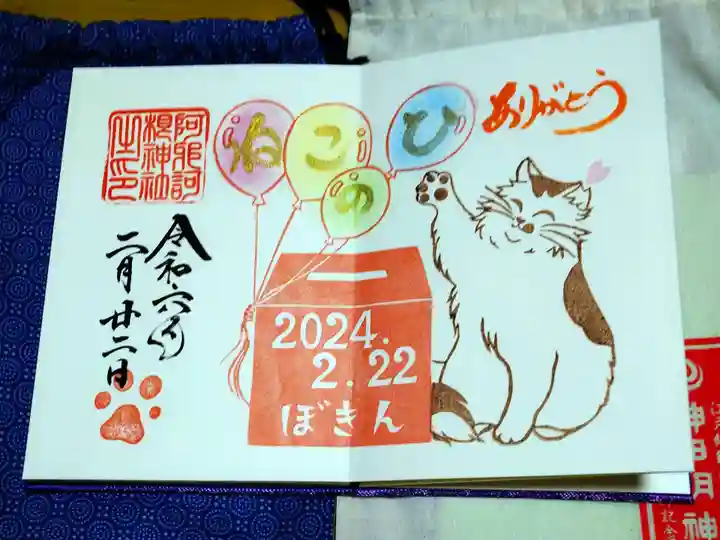 ありがとう
ねこのひ
2024.
2.22
ぼきん
阿邪訶
根神社
之印
令和六年
二月廿二日